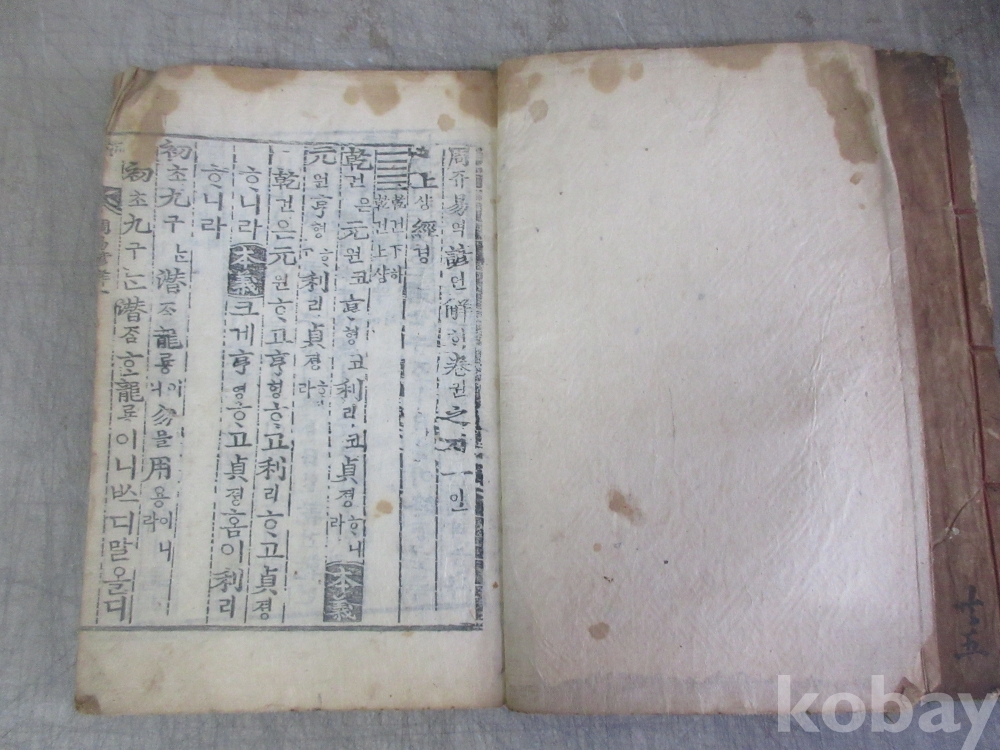 周쥬易역諺언解ᄒᆡ卷권之지一일
上샹經경
䷀乾건下하
乾건上샹
乾건은元원코亨형코利리코貞졍ᄒᆞ니라本義
元원亨형ᄒᆞ利리貞졍ᄒᆞ니라
乾건은元원ᄒᆞ고亨형ᄒᆞ고利리ᄒᆞ고貞졍
ᄒᆞ니라本義크게亨형ᄒᆞ고貞졍홈이利리
ᄒᆞ니라
初초九구ᄂᆞᆫ潛ᄌᆞᆷ龍룡이니勿믈用용이니라
初초九구ᄂᆞᆫ潛ᄌᆞᆷᄒᆞᆫ龍룡이니ᄡᅳ디말올디
kobay